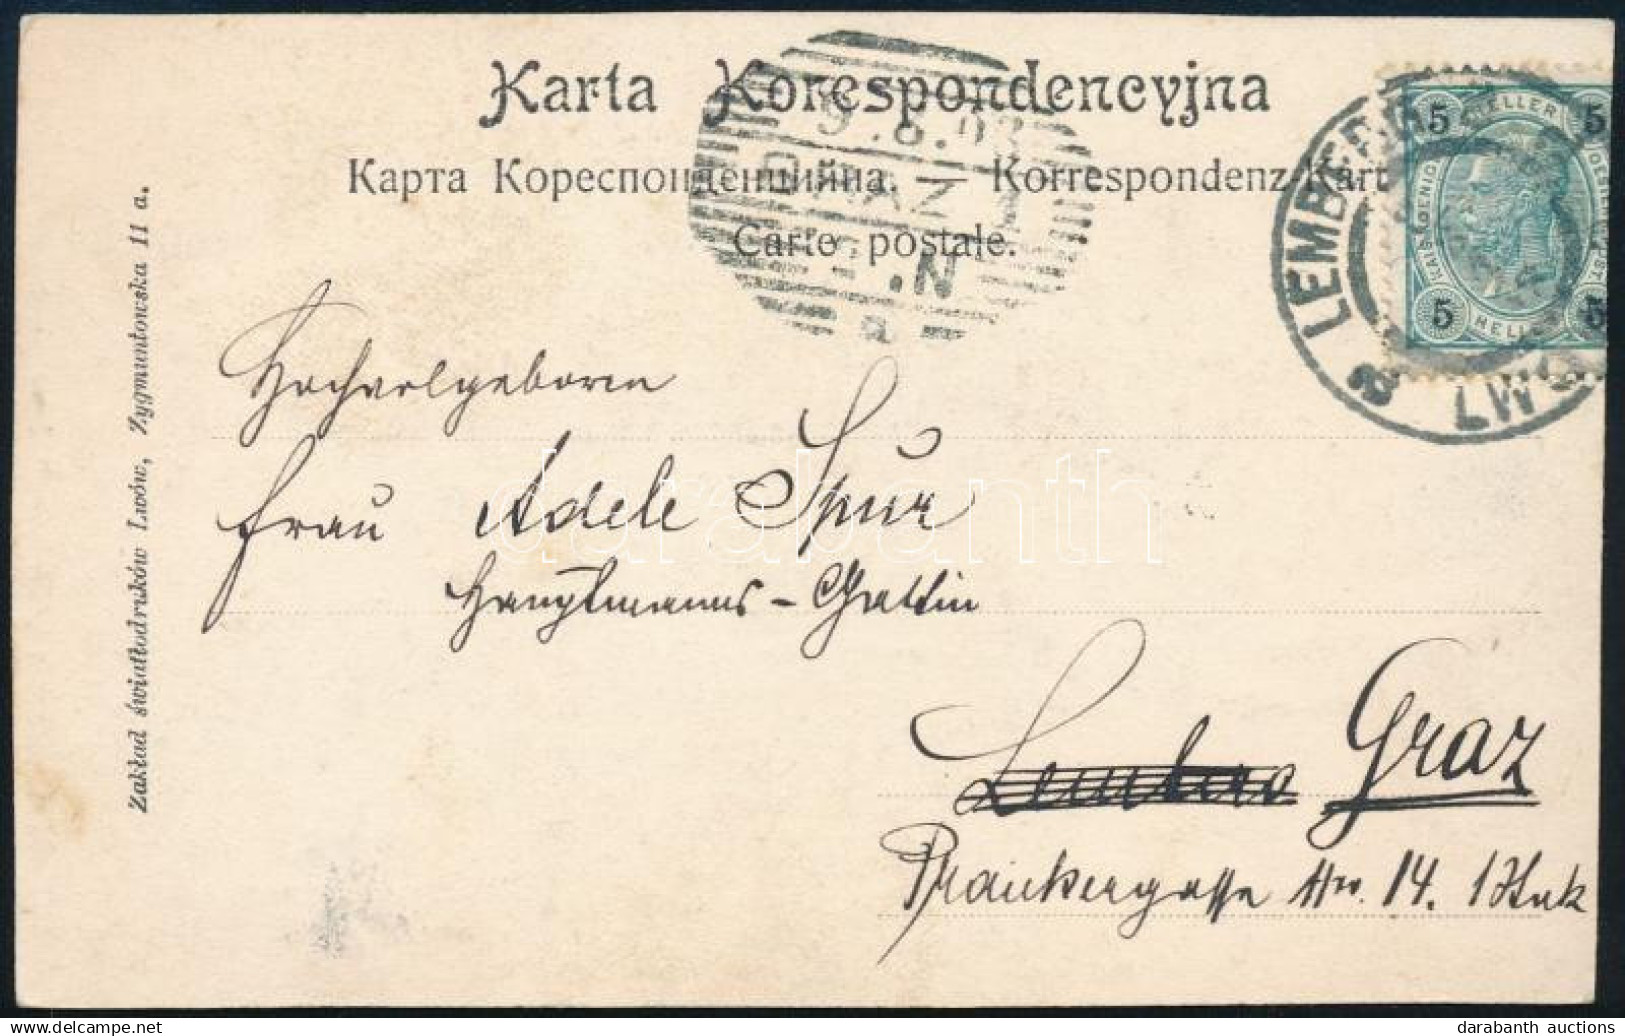 Karta Korespondencyjna
Карта Кореспонденцийна. Korrespondenz-Kart
Carte postale.
9.8.03
GRAZ 1
.N
a
LEMBERG
LWÓ
5 HELLER 5
KAIS.KOENIG
OESTERR.POST
5 HELLER 5
Zakład światłodruków Lwów, Zygmuntowska 11 a.
Hochwolgeboren
Frau Adele Spur
Hauptmanns-Gattin
Lemberg Graz
Prankergasse Nro. 14. 1 Stok
darabanth
darabanth auctions